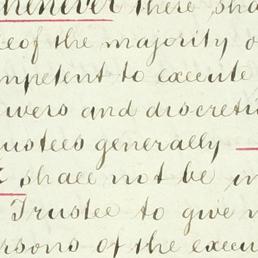 henever there sha
ce of the majority o
mpetent to execute
wers and discreti
rustees generally
shall not be in
Trustee to give
rsons of the execu